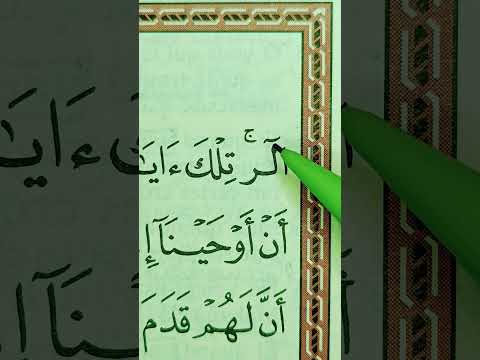 الٓر ۚ تِلْكَ ءَايَـٰ
أَنْ أَوْحَيْنَآ إِ
أَنَّ لَهُمْ قَدَمَ